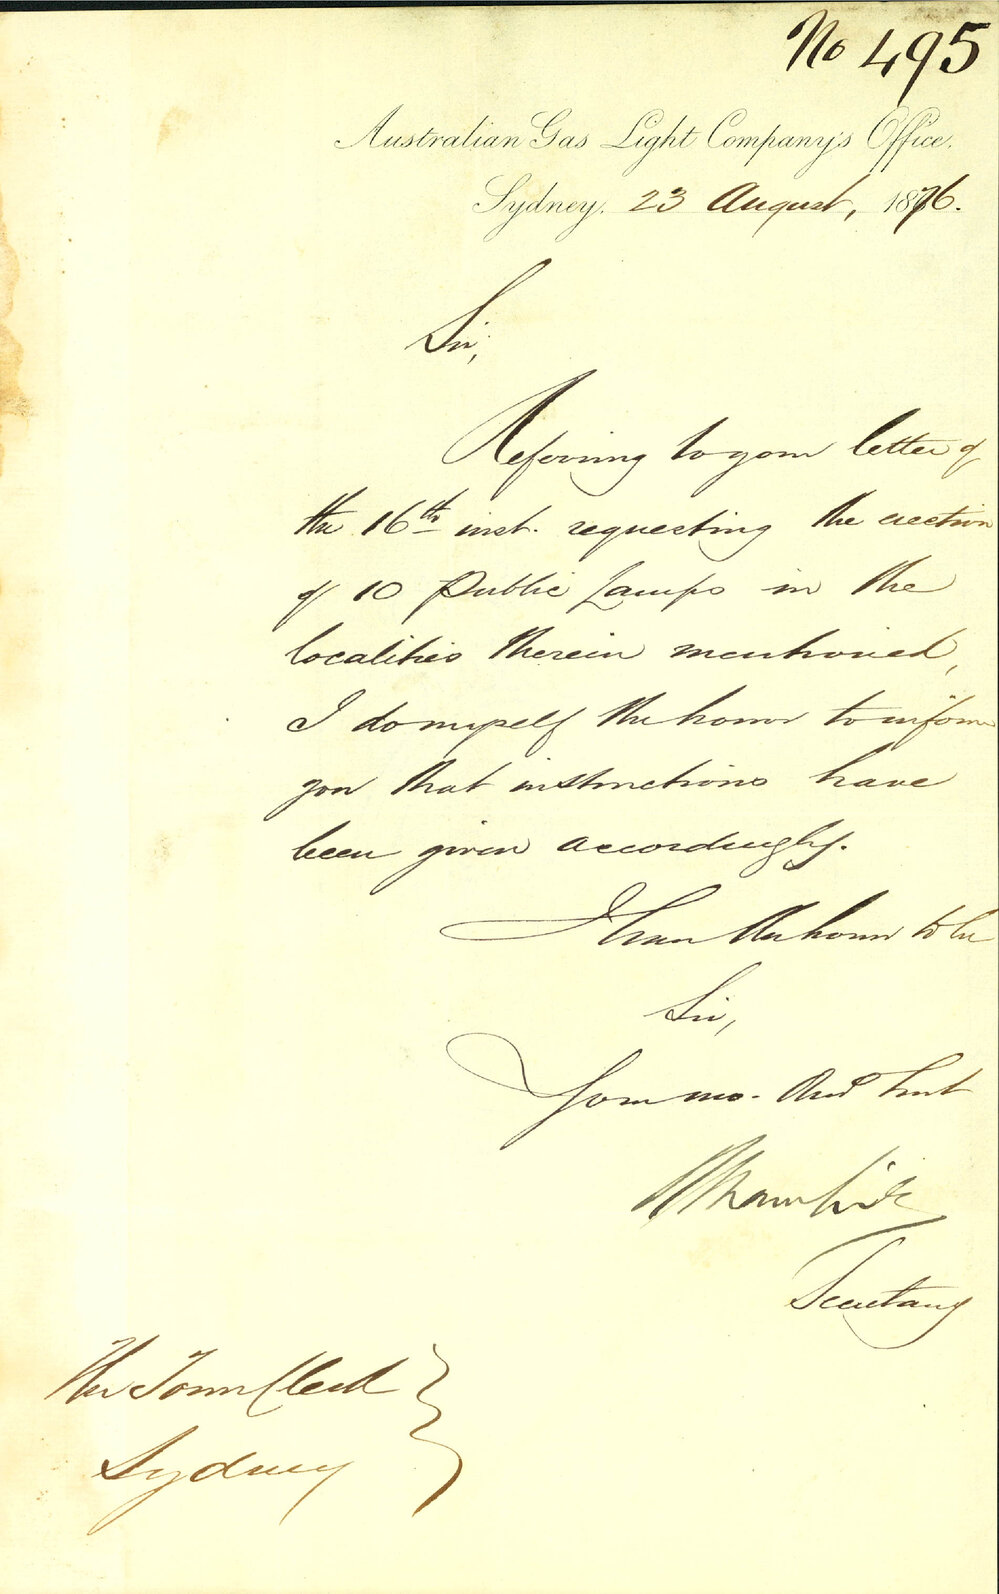 No 495
Australian Gas Light Company's Office.
Sydney. 23 August, 1876.
Sir,
Referring to your letter of
the 16th inst. requesting the erection
of 10 Public Lamps in the
localities therein mentioned,
I do myself the honor to inform
you that instructions have
been given accordingly.
I have the honor to be
Sir,
Your mo. Obd Servt
Secretary
The Town Clerk
Sydney